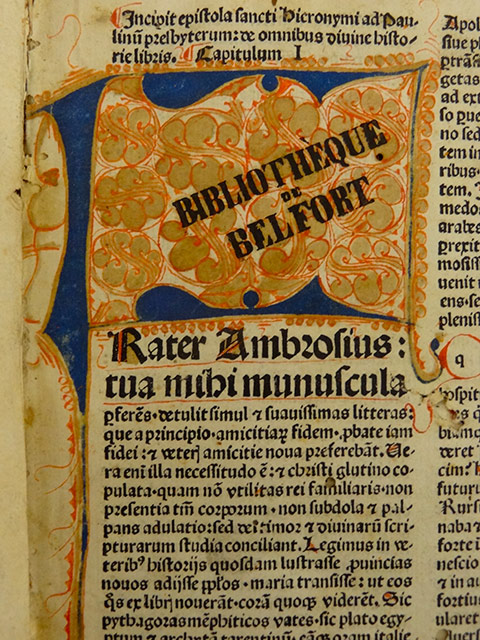 Incipit epistola sancti Hieronymi ad Pau-
linū presbyterum: de omnibus diuine histo-
rie libris. Capitulum I
BIBLIOTHÈQUE
DE
BELFORT
Rater Ambrosius:
tua mihi munuscula
ꝑferēs· detulit simul ⁊ suauissimas litteras:
que a principio amicitiaꝝ fidem· ꝓbate iam
fidei: ⁊ veteris amicitie noua preferebāt. Ve-
ra eni illa necessitudo ē: ⁊ christi glutino co-
pulata· quam nō vtilitas rei familiaris· non
presentia tm̄ corporum· non subdola ⁊ pal-
pans adulatio: sed dei timor ⁊ diuinarū scri-
pturarum studia conciliant. Legimus in ve-
teribꝰ historijs quosdam lustrasse ꝓuincias
nouos adijsse pplos· maria transisse: vt eos
qs ex libris nouerant· corā quoqꝫ viderēt. Sic
pythagoras mēphiticos vates· sic plato egy-
ptum ⁊ archytā tarentinū· eāqꝫ oram italie
Apol
siue p
ptrās
getas
ad ext
so pue
no sed
tem in
ribus·
tem. I
medos
arabes
prexit
mosiss
venit i
ens· se
plenist
q
hospit
q
biamq
deret
cim
futuru
Rursu
naba ⁊
forte i
nescio
⁊ in au
fortiu
ularet
Auerl